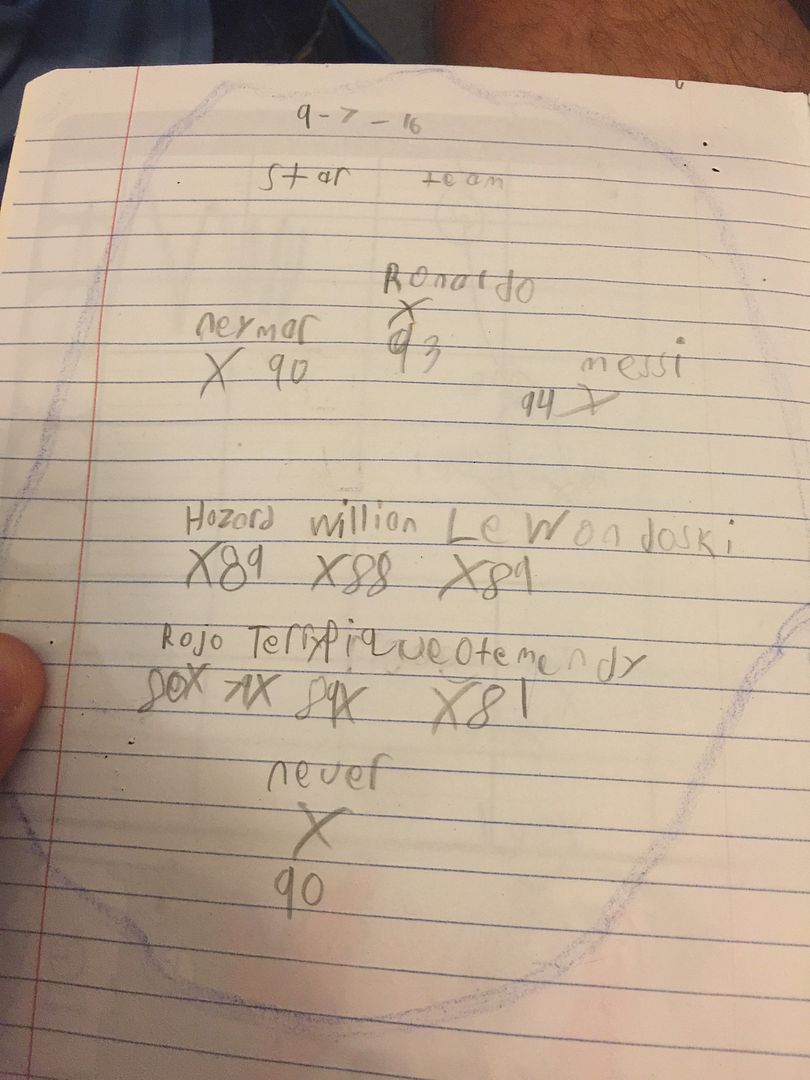 9-7-16
Star team
Ronaldo
X
neymar
93
X 90
messi
94 X
Hazard willian LeWandoski
X89 X88 X89
Rojo Terry Pique otemendy
80X X 89X X81
never
X
90